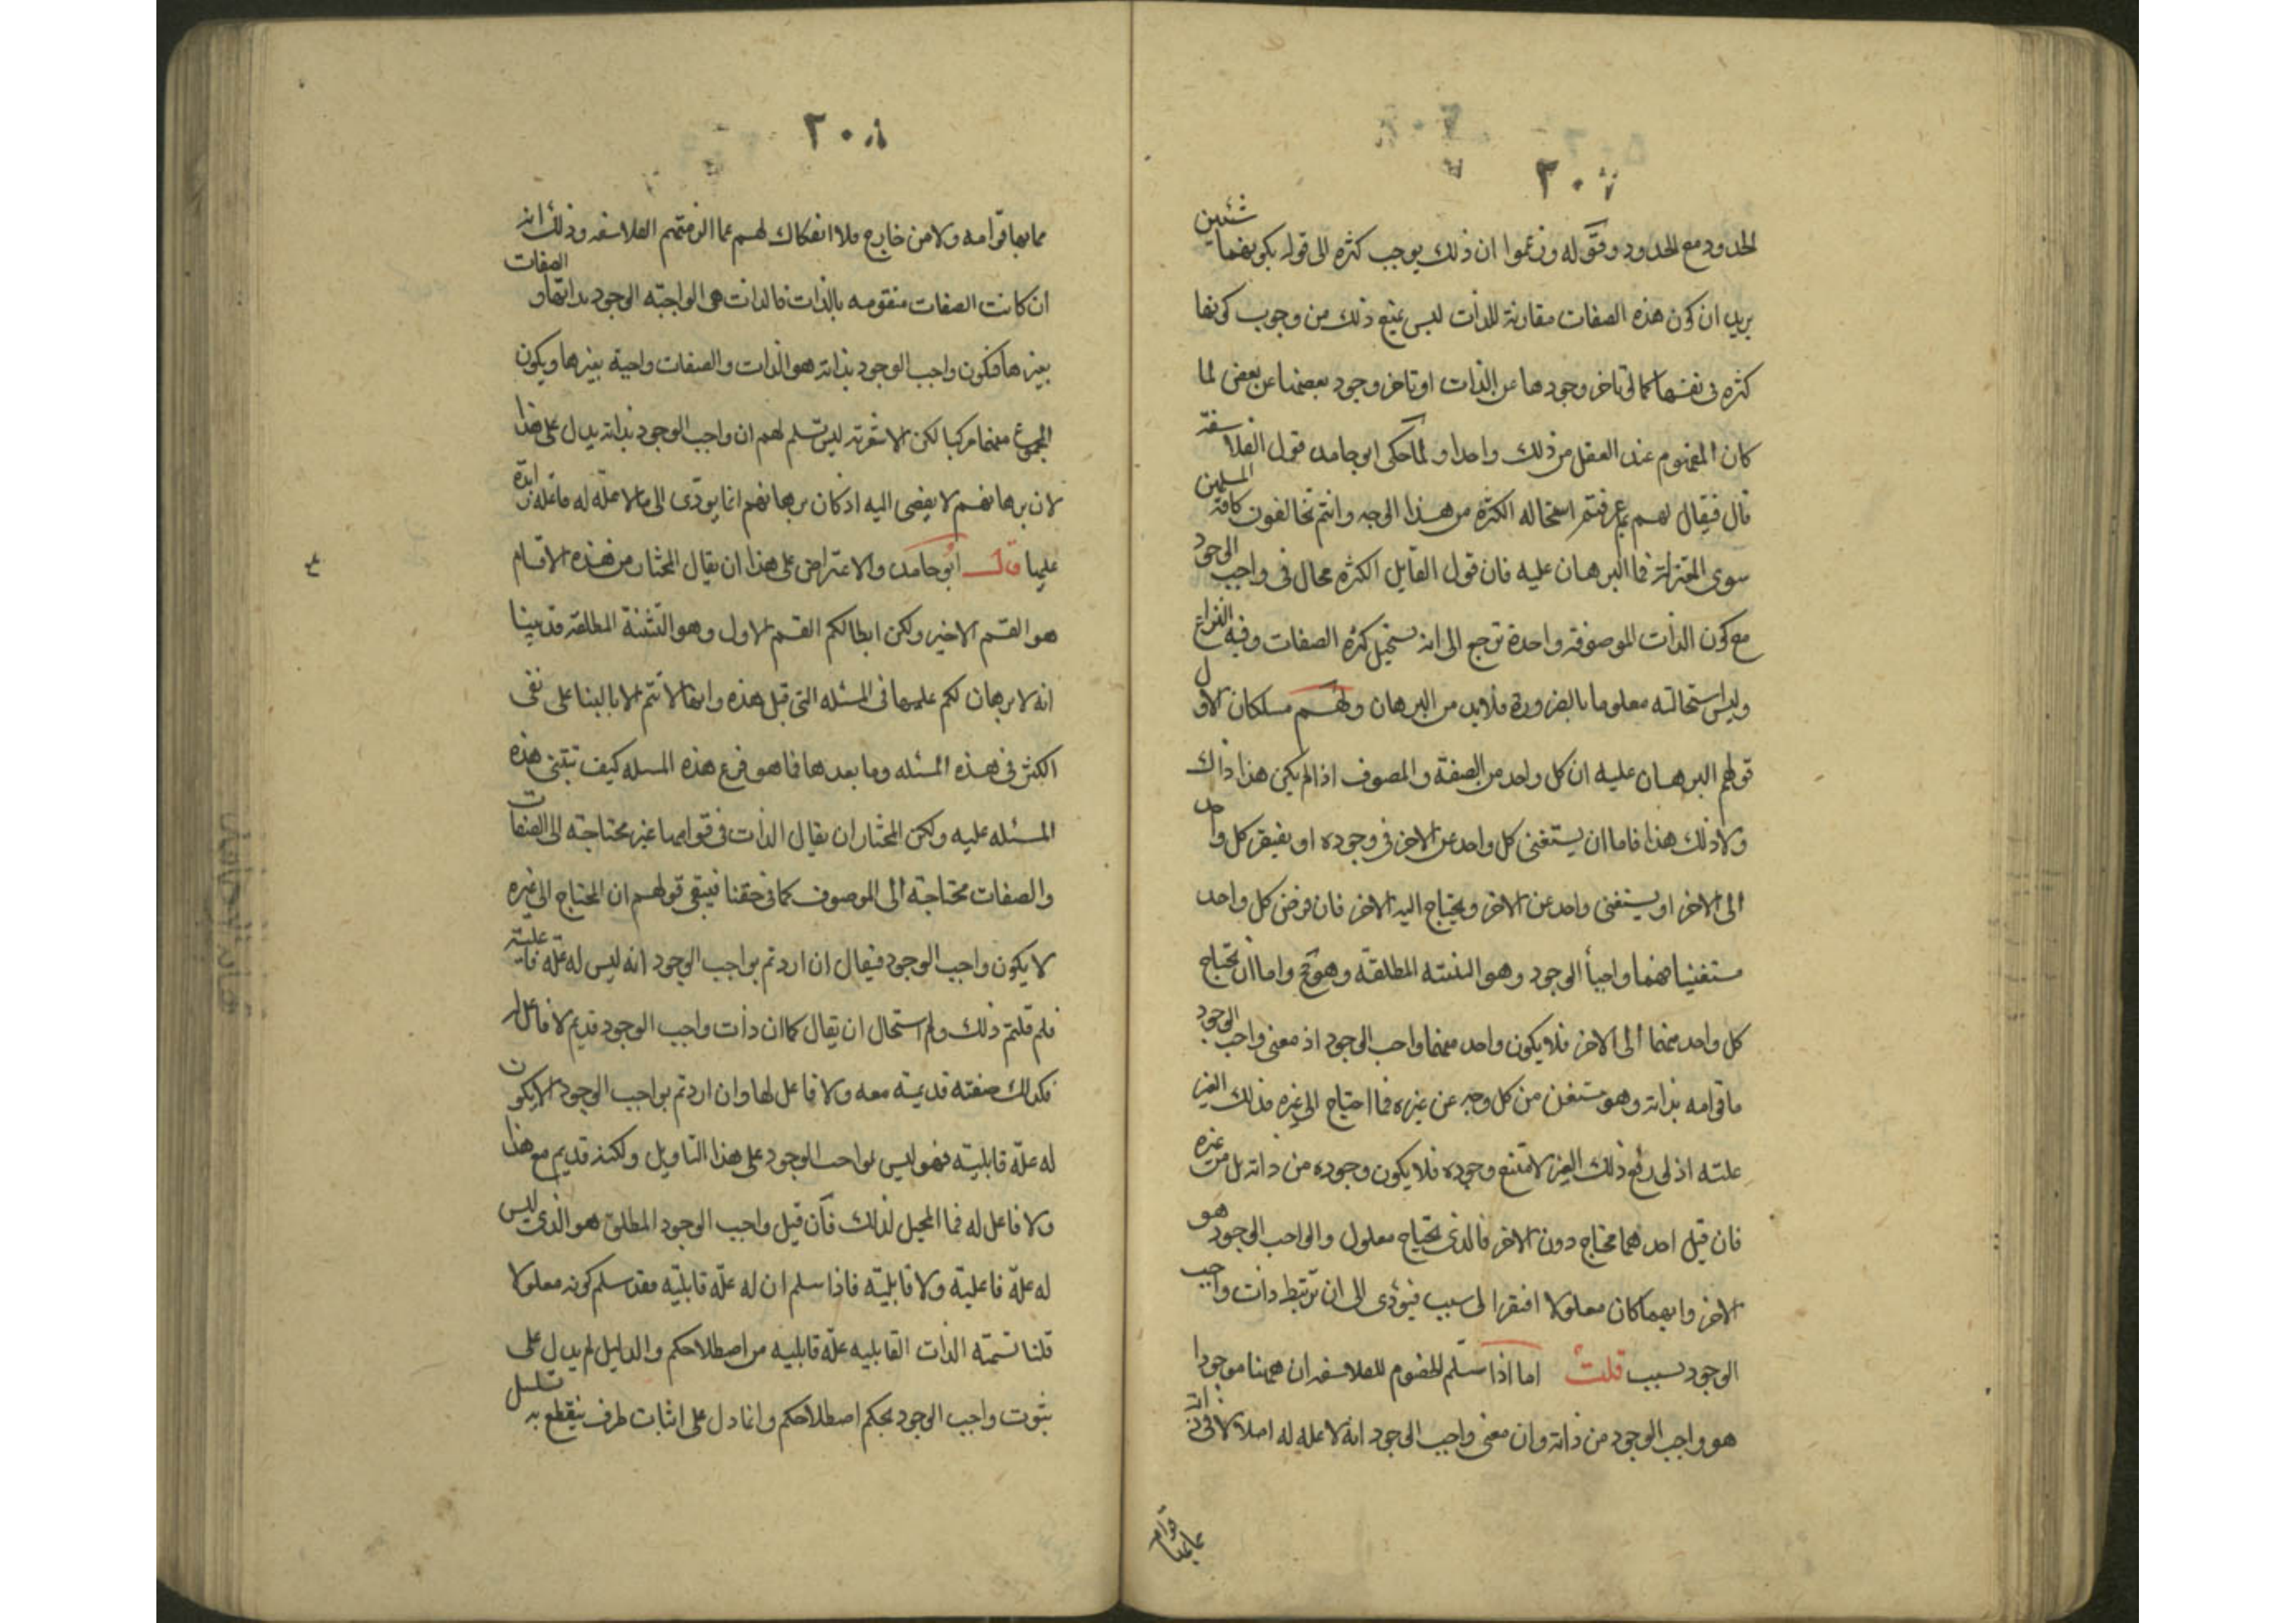 ٢٠٧
الحدود مع المحدود وقوله وزعموا ان ذلك يوجب كثره الى قوله بكونهما شئين
يريد ان كون هذه الصفات مقارنة للذات ليس يمنع ذلك من وجوب كونها
كثره في نفسها كما لو تاخر وجودها عن الذات او تاخر وجود بعضها عن بعض لما
كان المفهوم عند العقل من ذلك واحدا ولما حكى ابو حامد قول الفلاسفة
قال فيقال لهم بم عرفتم استحاله الكثرة من هذا الوجه وانتم تخالفون كافة المسلمين
سوى المعتزلة فما البرهان عليه فان قول القايل الكثره محال في واجب الوجود
مع كون الذات الموصوفة واحدة ترجع الى انه يستحيل كثره الصفات وفيه النزاع
وليس استحالته معلوما بالضرورة فلابد من البرهان ولهم مسلكان الاول
قولهم البرهان عليه ان كل واحد من الصفة والموصوف اذا لم يكن هذا ذاك
ولا ذلك هذا فاما ان يستغنى كل واحد عن الاخر في وجوده او يفيقر كل واحد
الى الاخر او يستغنى واحد عن الاخر ويحتاج اليه الاخر فان فرض كل واحد
مستغنيا فهما واجبا الوجود وهو التثنيته المطلقة وهو مح واما ان يحتاج
كل واحد منهما الى الاخر فلا يكون واحد منهما واجب الوجود اذ معنى واجب الوجود
ما قوامه بذاته وهو مستغن من كل وجه عن غيره فما احتاج الى غيره فذلك الغير
علته اذ لو رفع ذلك الغير لامتنع وجوده فلا يكون وجوده من ذاته بل من غيره
فان قيل احدهما محتاج دون الاخر فالذى يحتاج معلول والواجب الوجود هو
الاخر وايهما كان معلولا افتقر الى سبب فيؤدى الى ان ترتبط ذات واجب
الوجود بسبب قلت اما اذا سلم الخصوم للفلاسفه ان ههنا موجودا
هو واجب الوجود من ذاته وان معنى واجب الوجود انه لا عله له اصلا لا في ذاته
٢٠٨
مما بها قوامه ولا من خارج فلا انفكاك لهم عما الزمتهم الفلاسفه وذلك انه
ان كانت الصفات متقومه بالذات فالذات هي الواجبة الوجود بذاتها والصفات
بغيرها فيكون واجب الوجود بذاته هو الذات والصفات واجبة بغيرها ويكون
المجموع منهما مركبا لكن الاشعرية ليس تسلم لهم ان واجب الوجود بذاته يدل على هذا
لان برهانهم لا يفضى اليه اذ كان برهانهم انما يودى الى ما لا علة له فاعله زايدة
عليها قال ابو حامد والاعتراض على هذا ان يقال المختار من هذه الاقسام
هو القسم الاخير ولكن ابطالكم القسم الاول وهو التثنية المطلقه قد بينا
انه لا برهان لكم عليها في المسئله التي قبل هذه وانها لا تتم الا بالبنا على نفى
الكثر في هذه المسئله وما بعدها فما هو فرع هذه المسله كيف تبتنى هذه
المسئله عليه ولكن المختار ان يقال الذات في قوامها غير محتاجة الى الصفات
والصفات محتاجة الى الموصوف كما في حقنا فيبقى قولهم ان المحتاج الى غيره
لا يكون واجب الوجود فيقال ان اردتم بواجب الوجود انه ليس له علة فاعلية
فلم قلتم ذلك ولم استحال ان يقال كما ان ذات واجب الوجود قديم لا فاعل له
فكذلك صفته قديمة معه ولا فاعل لها وان اردتم بواجب الوجود الا يكون
له علة قابلية فهو ليس بواجب الوجود على هذا التاويل ولكنه قديم مع هذا
ولا فاعل له فما المحيل لذلك فان قيل واجب الوجود المطلق هو الذى ليس
له علة فاعلية ولا قابلية فاذا سلم ان له علة قابلية فقد سلم كونه معلولا
قلنا تسمية الذات القابليه علة قابليه من اصطلاحكم والدليل لم يدل على
ثبوت واجب الوجود بحكم اصطلاحكم وانما دل على اثبات طرف ينقطع به تسلسل